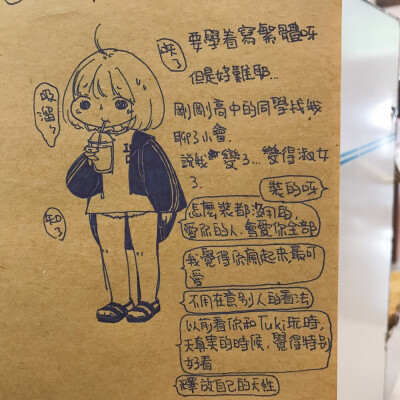 要學着寫繁體呀
但是好難耶...
吸溜~
剛剛高中的同學找我
聊了小會.
說我變了...變得淑女
了.
裝的呀
怎麼裝都沒用的,
愛你的人,會愛你全部
我覺得你瘋起來最可
愛
不用在意別人的看法
以前看你和Tuki玩時,
天真的時候,覺得特別
好看
釋放自己的天性